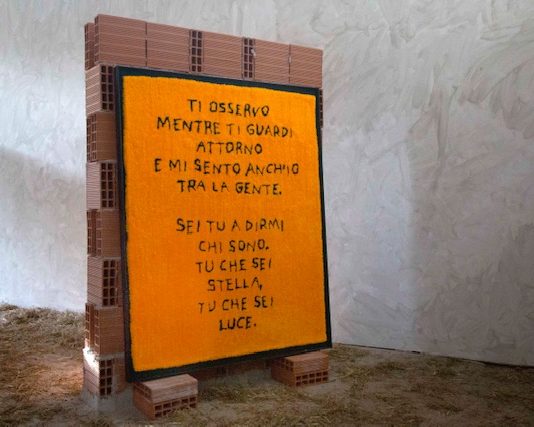 TI OSSERVO
MENTRE TI GUARDI
ATTORNO
E MI SENTO ANCH'IO
TRA LA GENTE.
SEI TU A DIRMI
CHI SONO.
TU CHE SEI
STELLA,
TU CHE SEI
LUCE.